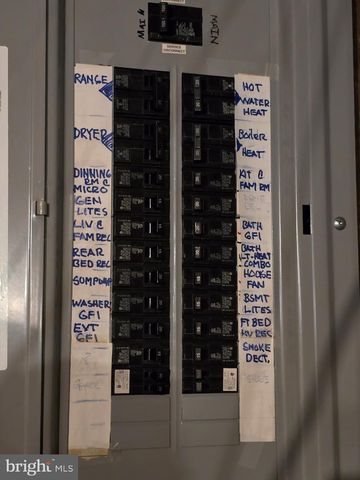 MAIN
MAIN
SERVICE
DISCONNECT
RANGE
DRYER
DINNING
RM &
MICRO
GEN
LITES
LIV &
FAM REC
REAR
BED REC
SUMPUMP
WASHER
GFI
EXT
GFI
HOT
WATER
HEAT
Boiler
HEAT
KIT &
FAM RM
BATH
GFI
BATH
LT-HEAT
COMBO
HOUSE
FAN
BSMT
LITES
FT BED
LIV REC
SMOKE
DECT.
bright MLS